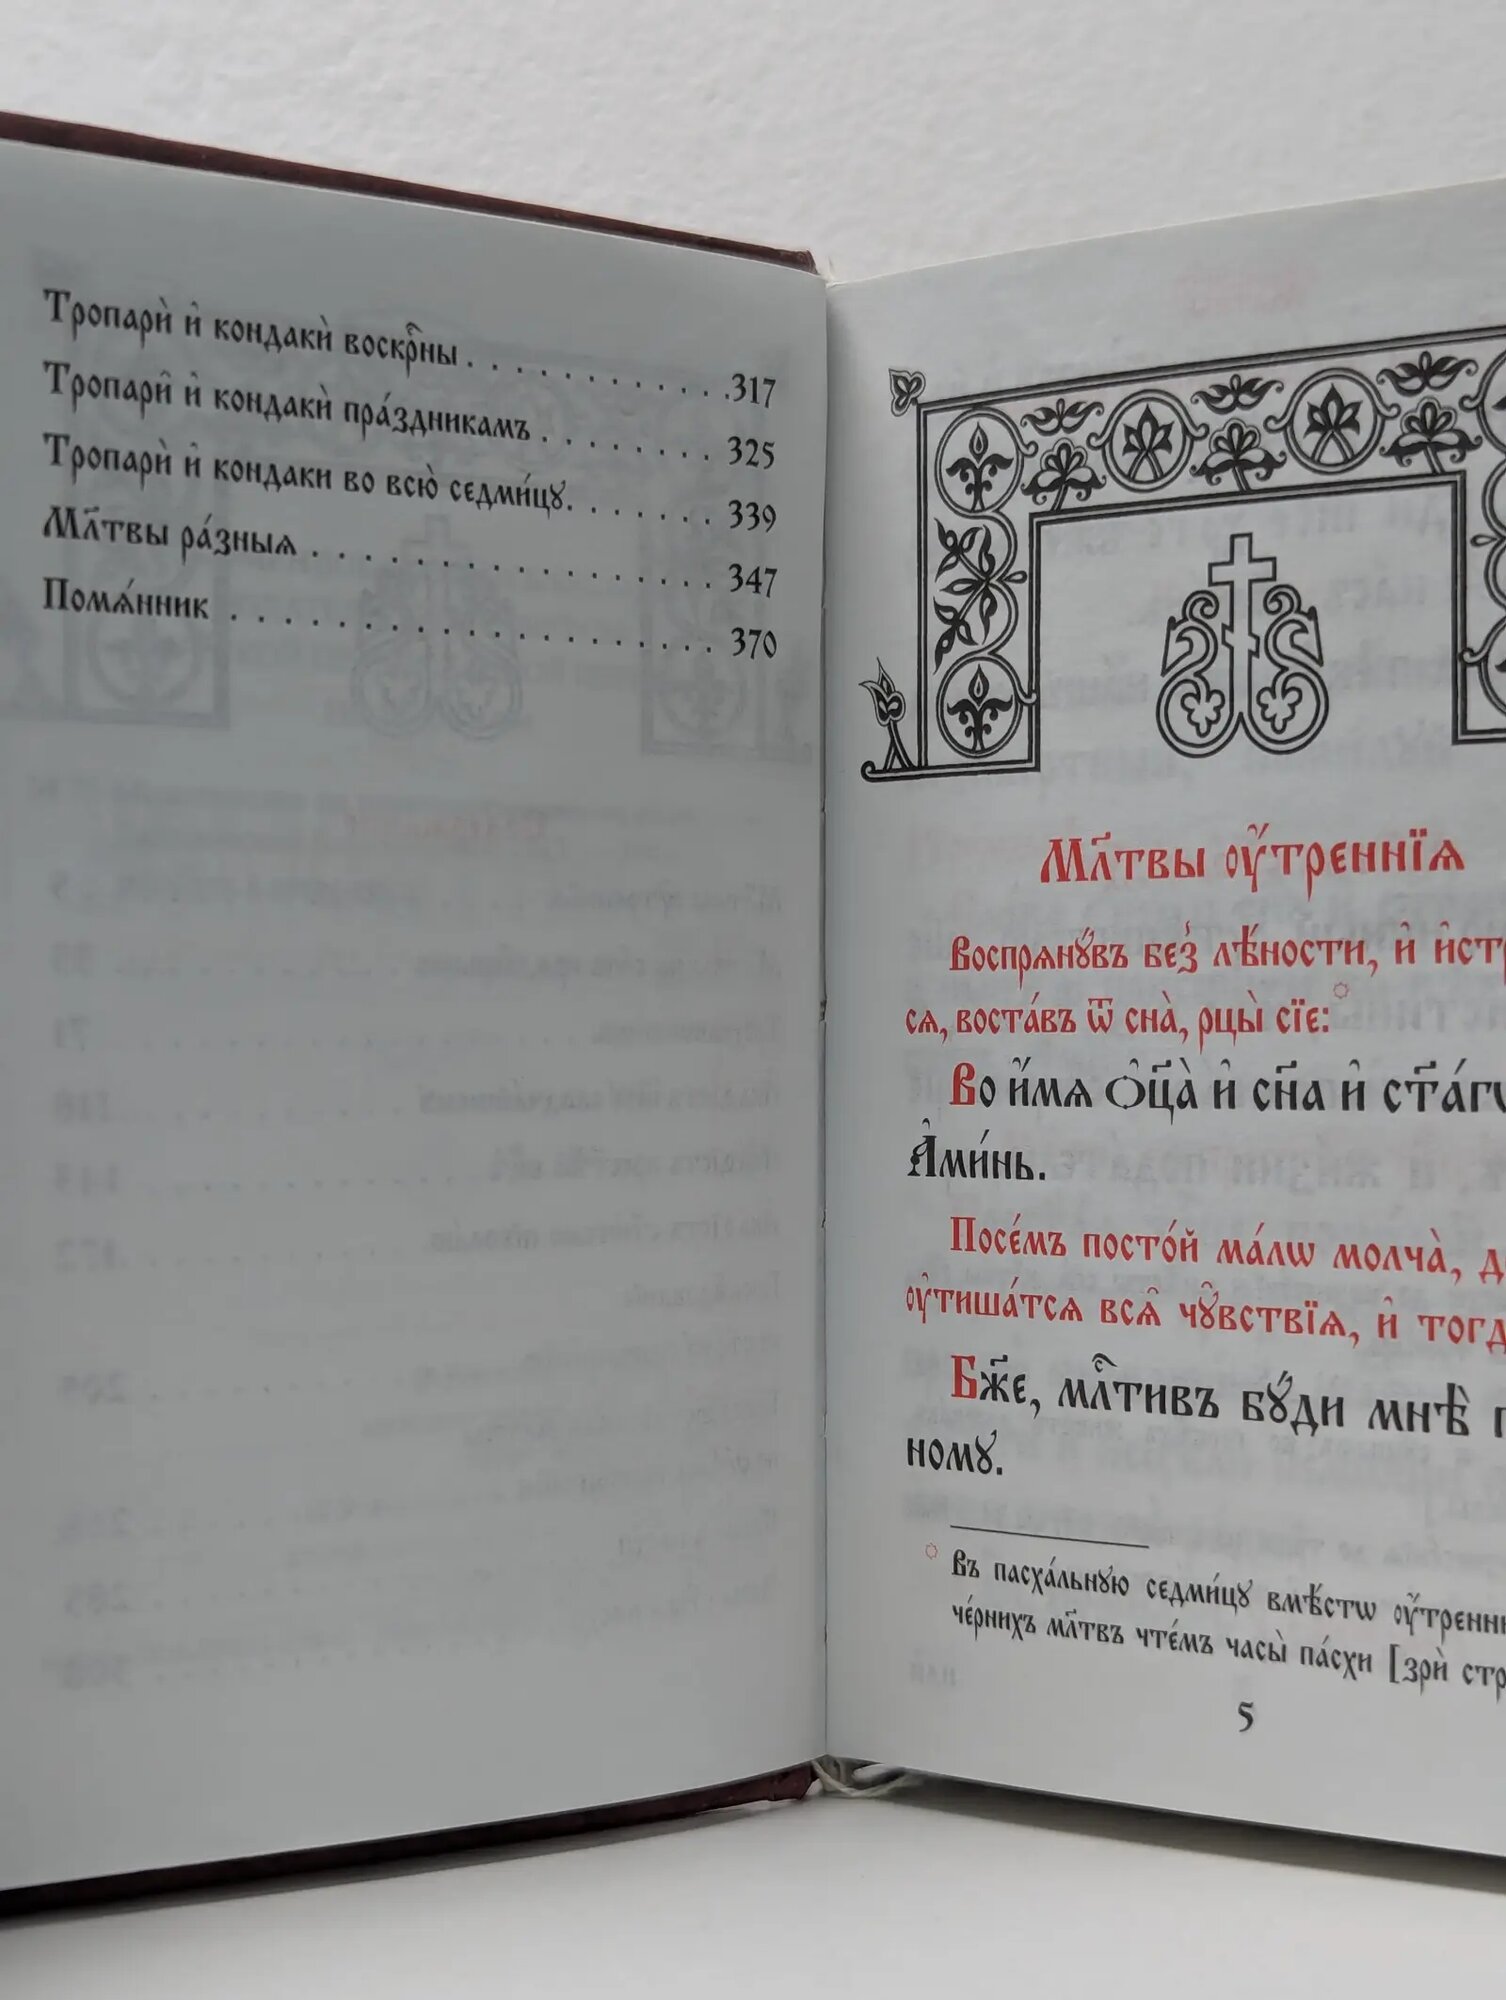 Тропари̑ и҆ кондаки̑ воскрⷭ҇ны . . . . . . . . . . . . 317
Тропари̑ и҆ кондаки̑ пра́здникамъ . . . . . . . . 325
Тропари̑ и҆ кондаки во всю̀ седми́цꙋ. . . . . . . 339
Мл҃твы ра́зныѧ . . . . . . . . . . . . . . . . 347
Помѧ́нник . . . . . . . . . . . . . . . . . . . 370
Мл҃твы ᲂу҆́тренниѧ
Воспрѧнꙋ́въ без̾ лѣ́ности, и҆
сѧ, воста́въ ѿ сна̀, рцы̀ сїе:
Во и҆́мѧ ѻ҆ц҃а̀ и҆ сн҃а и҆
А҆ми́нь.
Посе́мъ посто́й ма́лѡ молча̀,
ᲂу҆тиша́тсѧ всѧ̑ чꙋ̑вствїѧ, и҆
Бж҃е, млⷭ҇тивъ бꙋ́ди мнѣ̀
номꙋ.
Въ пасха́льнꙋю седми́цꙋ вмѣ́стѡ
че́рнихъ мл҃твъ чте́мъ часы̀ па́схи [зрѝ
5